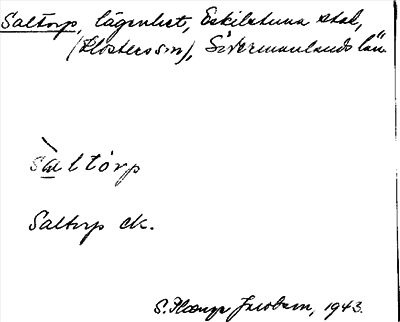 Saltorp, lägenhet, Eskilstuna stad,
(Klosters sn), Södermanlands län.
sàltòrp
Saltorp ek.
Jacobsen, 1943.